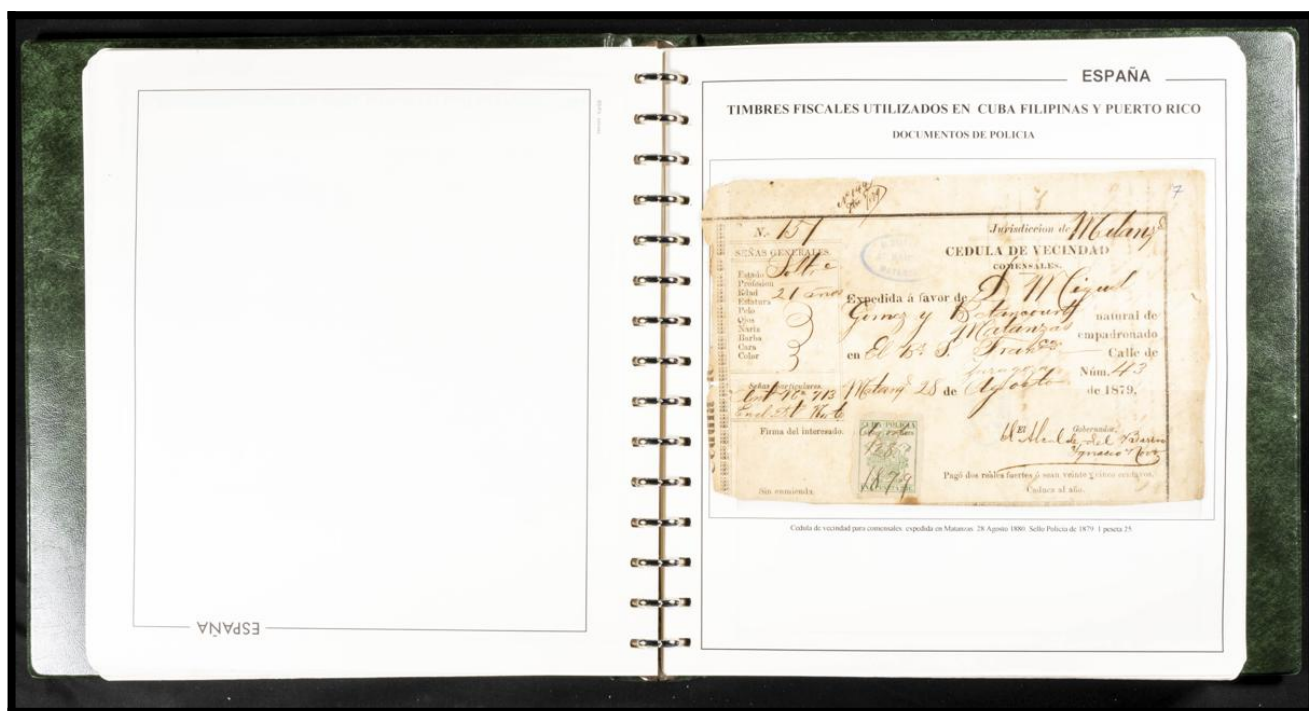 ESPAÑA
ESPAÑA
TIMBRES FISCALES UTILIZADOS EN CUBA FILIPINAS Y PUERTO RICO
DOCUMENTOS DE POLICIA
7
N. 157
Jurisdiccion de Matanzs
SEÑAS GENERALES.
CEDULA DE VECINDAD
COMENSALES.
Estado Solto
Profesion
Edad 21 años
Estatura
Pelo
Ojos
Nariz
Barba
Cara
Color
Expedida á favor de D. Miguel
Gomez y Betancourt natural de
Matanzas empadronado
en El Bo. S. Franco Calle de
Núm. 43
Matanzs 28 de Agosto de 1879.
Señas particulares.
Firma del interesado.
POLICIA
1879
El Gobernador,
El Alcalde del Barrio
Ignacio
Pagó dos reales fuertes ó sean veinte y cinco centavos.
Sin enmienda
Caduca al año.
Cedula de vecindad para comensales expedida en Matanzas 28 Agosto 1880. Sello Policia de 1879 1 peseta 25